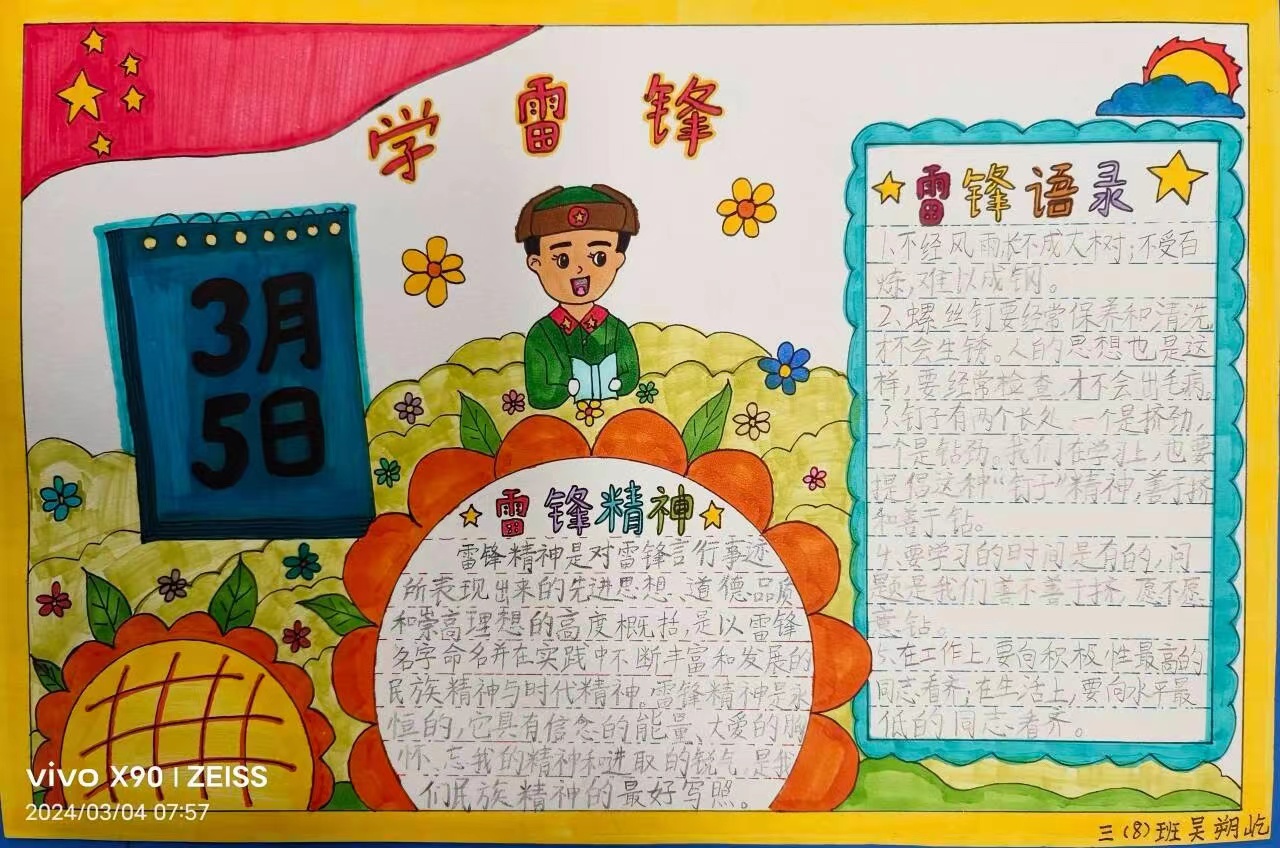 学雷锋
3月
5日
雷锋精神
雷锋精神是对雷锋言行事迹
所表现出来的先进思想、道德品质
和崇高理想的高度概括,是以雷锋
名字命名并在实践中不断丰富和发展的
民族精神与时代精神。雷锋精神是永
恒的,它具有信念的能量、大爱的胸
怀、忘我的精神和进取的锐气,是我
们民族精神的最好写照。
雷锋语录
1.不经风雨,长不成大树;不受百
炼,难以成钢。
2、螺丝钉要经常保养和清洗,
才不会生锈。人的思想也是这
样,要经常检查,才不会出毛病。
3、钉子有两个长处:一个是挤劲,
一个是钻劲。我们在学习上,也要
提倡这种“钉子”精神,善于挤
和善于钻。
4.要学习的时间是有的,问
题是我们善不善于挤,愿不愿
意钻。
5、在工作上,要向积极性最高的
同志看齐;在生活上,要向水平最
低的同志看齐。
三(8)班吴朔屹
vivo X90 | ZEISS
2024/03/04 07:57